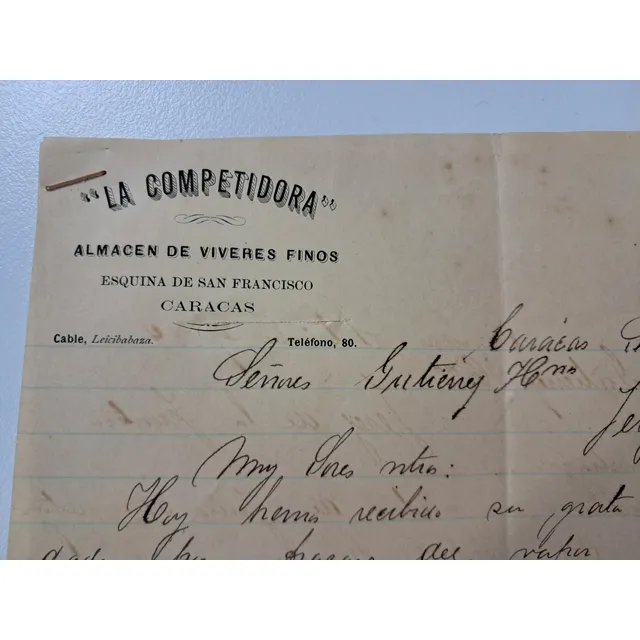 "LA COMPETIDORA"
ALMACEN DE VIVERES FINOS
ESQUINA DE SAN FRANCISCO
CARACAS
Cable, Leicibabaza. Teléfono, 80.
Caracas
Señores Gutierrez Hnos
Muy Sores ntros:
Hoy hemos recibido su grata
del vapor